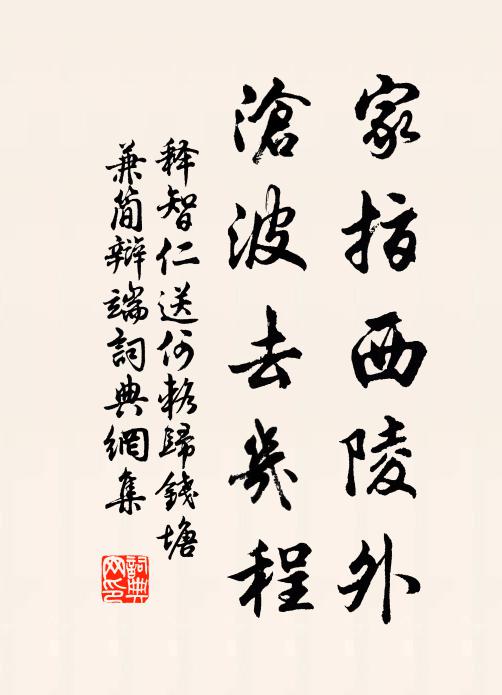 家指西陵外
滄波去幾程
释智仁送何輅歸錢塘
兼简辯端詞典網集
詞典网印